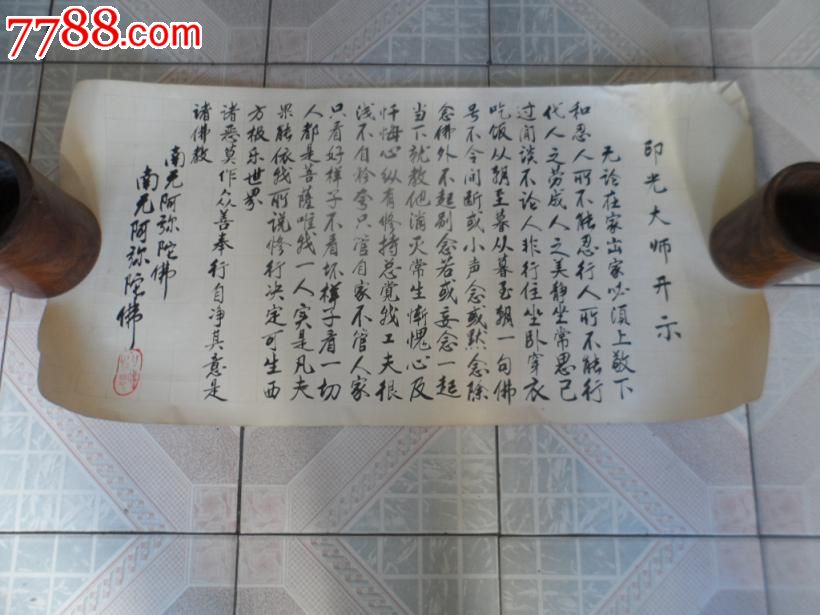 7788.com
印光大师开示
无论在家出家必须上敬下
和忍人所不能忍行人所不能行
代人之劳成人之美静坐常思己
过闲谈不论人非行住坐卧穿衣
吃饭从朝至暮从暮至朝一句佛
号不令间断或小声念或默念除
念佛外不起别念若或妄念一起
当下就教他消灭常生惭愧心及
忏悔心纵有修持总觉我工夫很
浅不自矜夸只管自家不管人家
只看好样子不看坏样子看一切
人都是菩薩唯我一人实是凡夫
果能依我所说修行决定可生西
方极乐世界
诸恶莫作众善奉行自净其意是
诸佛教
南无阿弥陀佛
南无阿弥陀佛